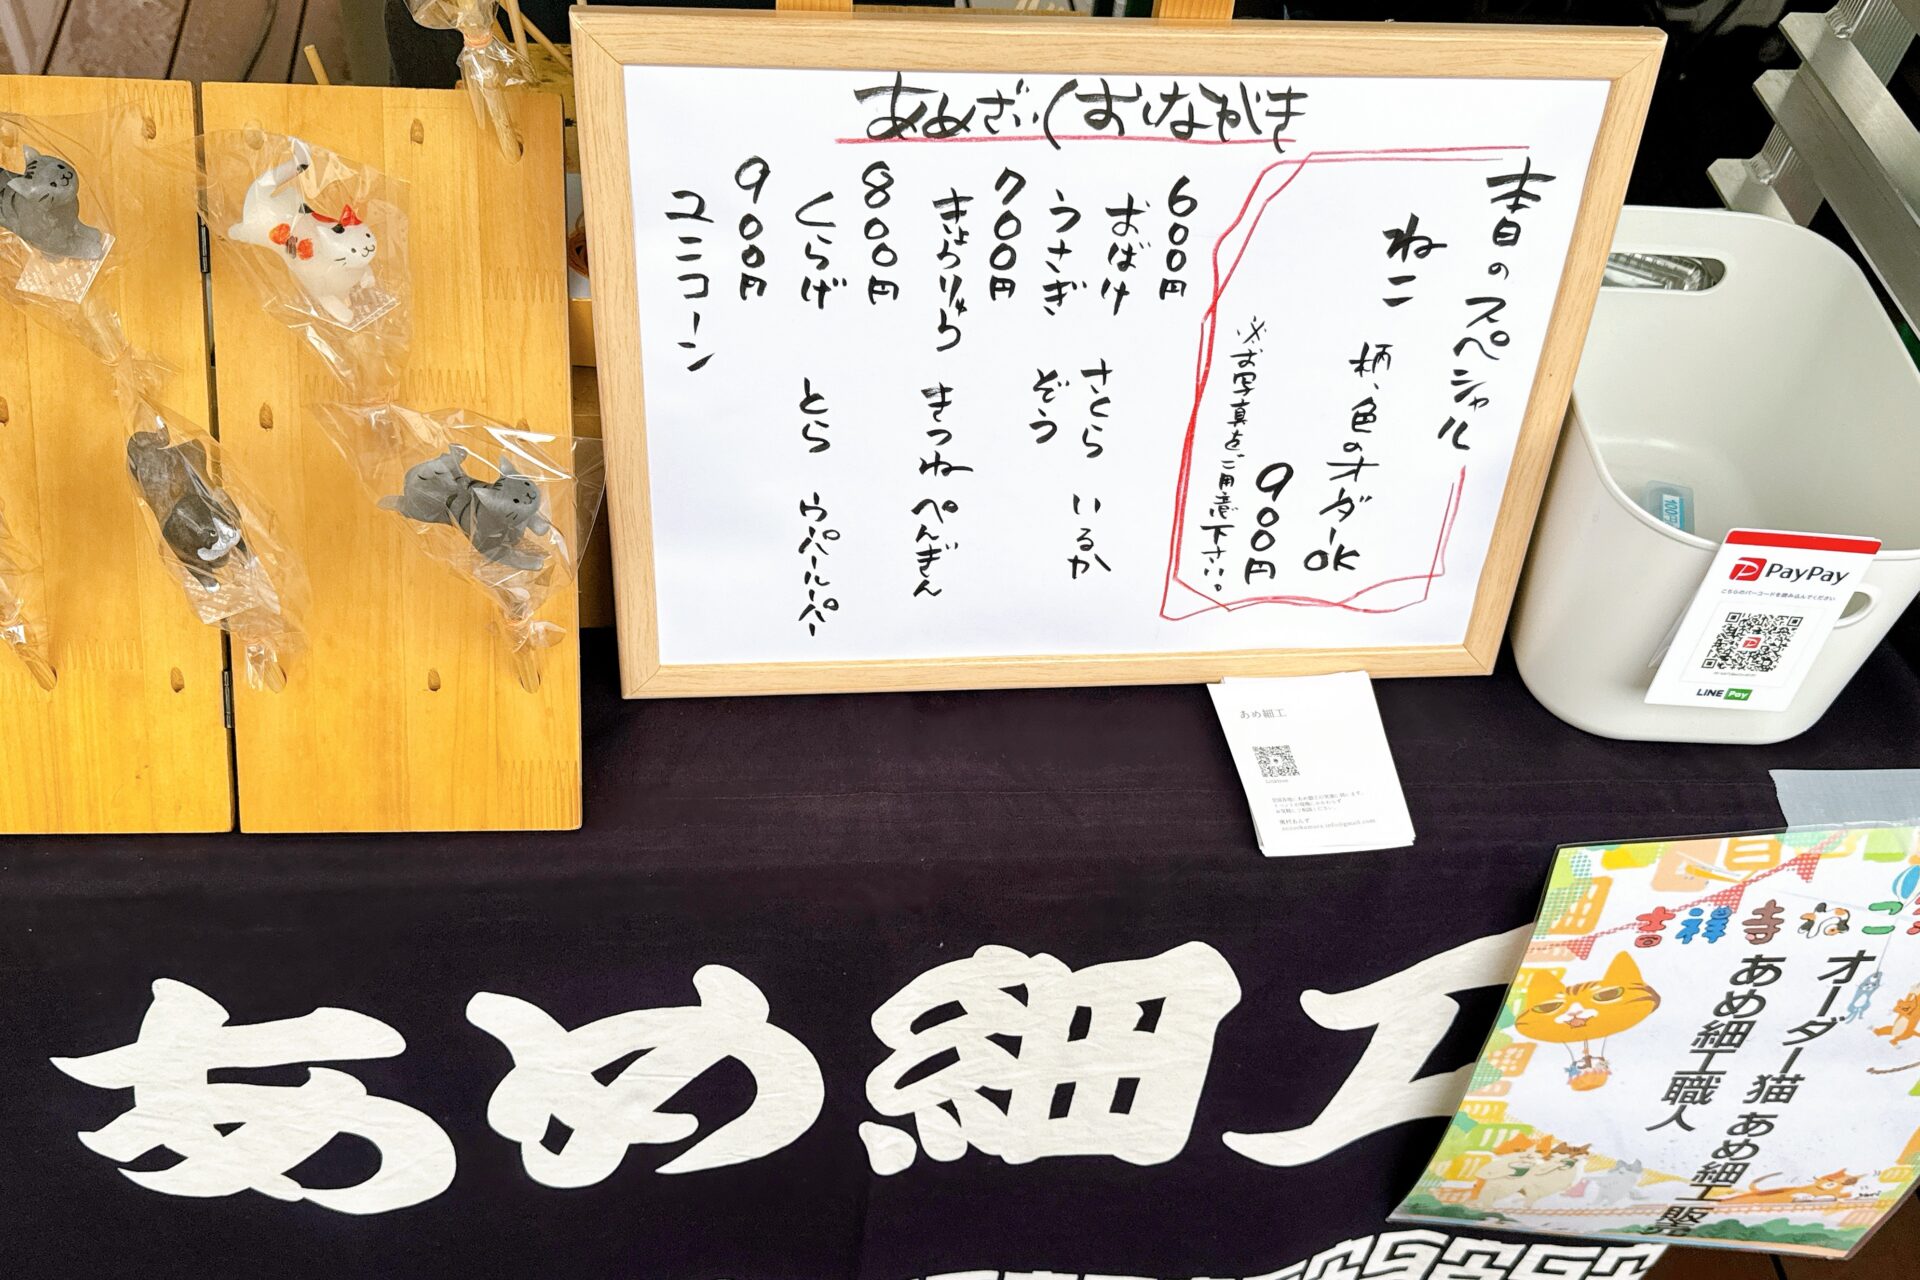 あめざいくおしながき
本日のスペシャル
ねこ 柄、色のオーダーOK
900円
※お写真をご用意下さい。
600円
おばけ さくら いるか
うさぎ ぞう
700円
きょうりゅう きつね ぺんぎん
800円
くらげ とら ウパールーパー
900円
ユニコーン
PayPay
こちらのバーコードを読み込んでください
LINE Pay
あめ細工
あめ細工
吉祥寺ねこ
オーダー猫 あめ細工販売
あめ細工職人